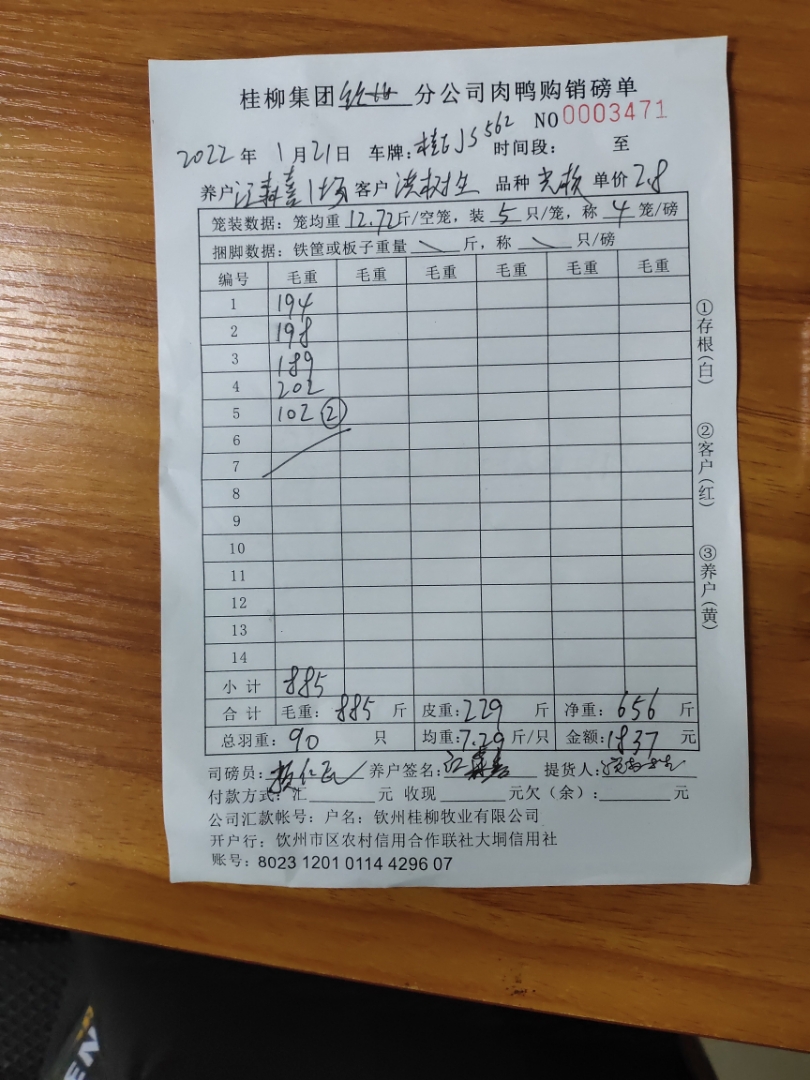 桂柳集团钦州分公司肉鸭购销磅单
NO 0003471
2022年 1月21日 车牌: 桂 JS562 时间段: 至
养户 江森喜1场 客户 洪树生 品种 单价 2.8
笼装数据: 笼均重 12.72斤/空笼, 装 5 只/笼, 称 4 笼/磅
捆脚数据: 铁筐或板子重量 \ 斤, 称 \ 只/磅
编号 毛重 毛重 毛重 毛重 毛重 毛重
1 194
2 198
3 189
4 202
5 102 ②
6
7
8
9
10
11
12
13
14
小计 885
合计 毛重: 885 斤 皮重: 229 斤 净重: 656 斤
总羽重: 90 只 均重: 7.29 斤/只 金额: 1837 元
司磅员: 养户签名: 江森喜 提货人:
付款方式: 汇 元 收现 元欠(余): 元
公司汇款帐号: 户名: 钦州桂柳牧业有限公司
开户行: 钦州市区农村信用合作联社大垌信用社
账号: 8023 1201 0114 4296 07
①存根(白)
②客户(红)
③养户(黄)
EN